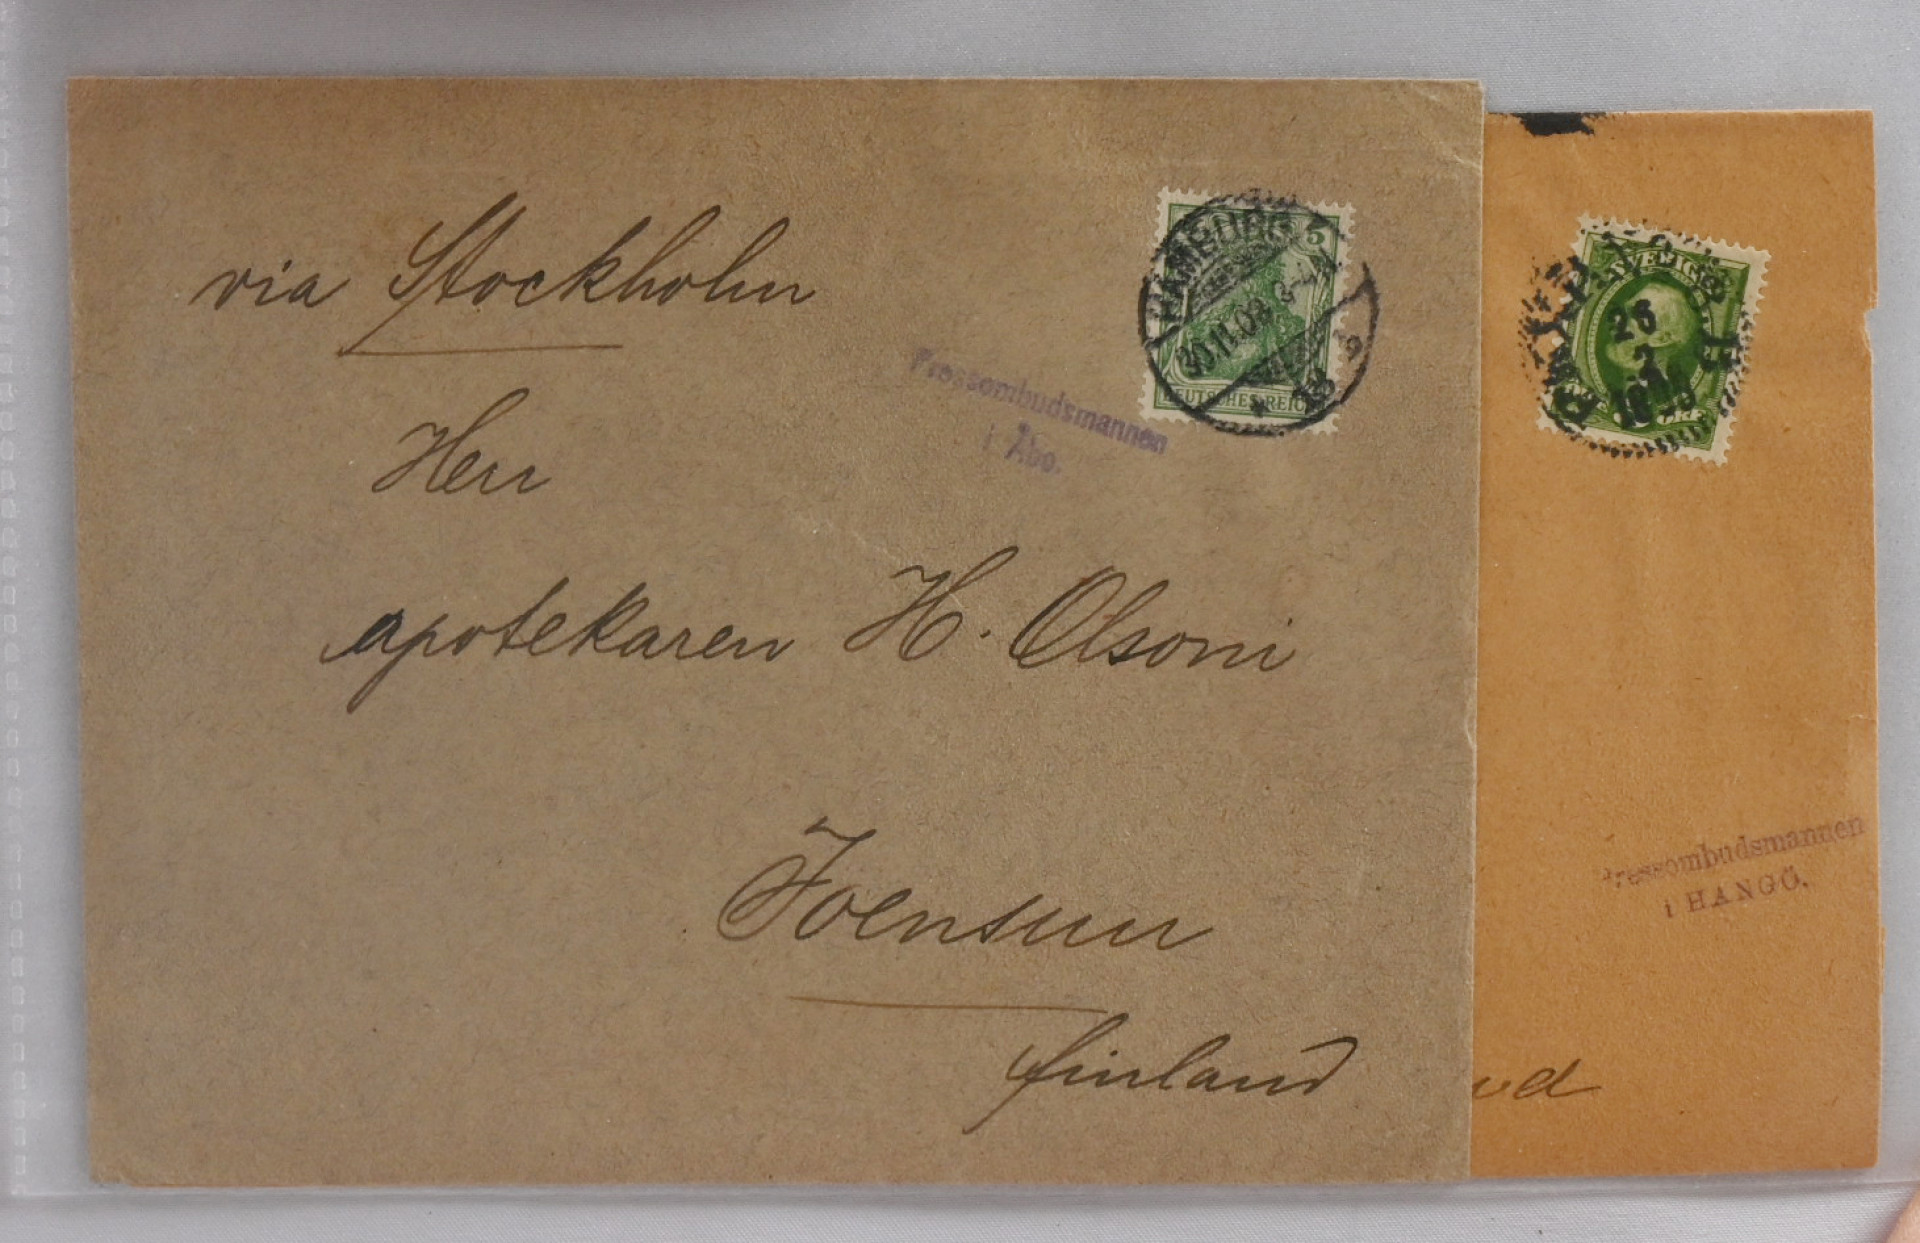 via Stockholm
Herr
apotekaren H. Olsoni
Joensuu
Finland
HAMBURG
5
DEUTSCHES REICH
Pressombudsmannen
i Åbo.
SVERIGE
26
2
Pressombudsmannen
i HANGÖ.